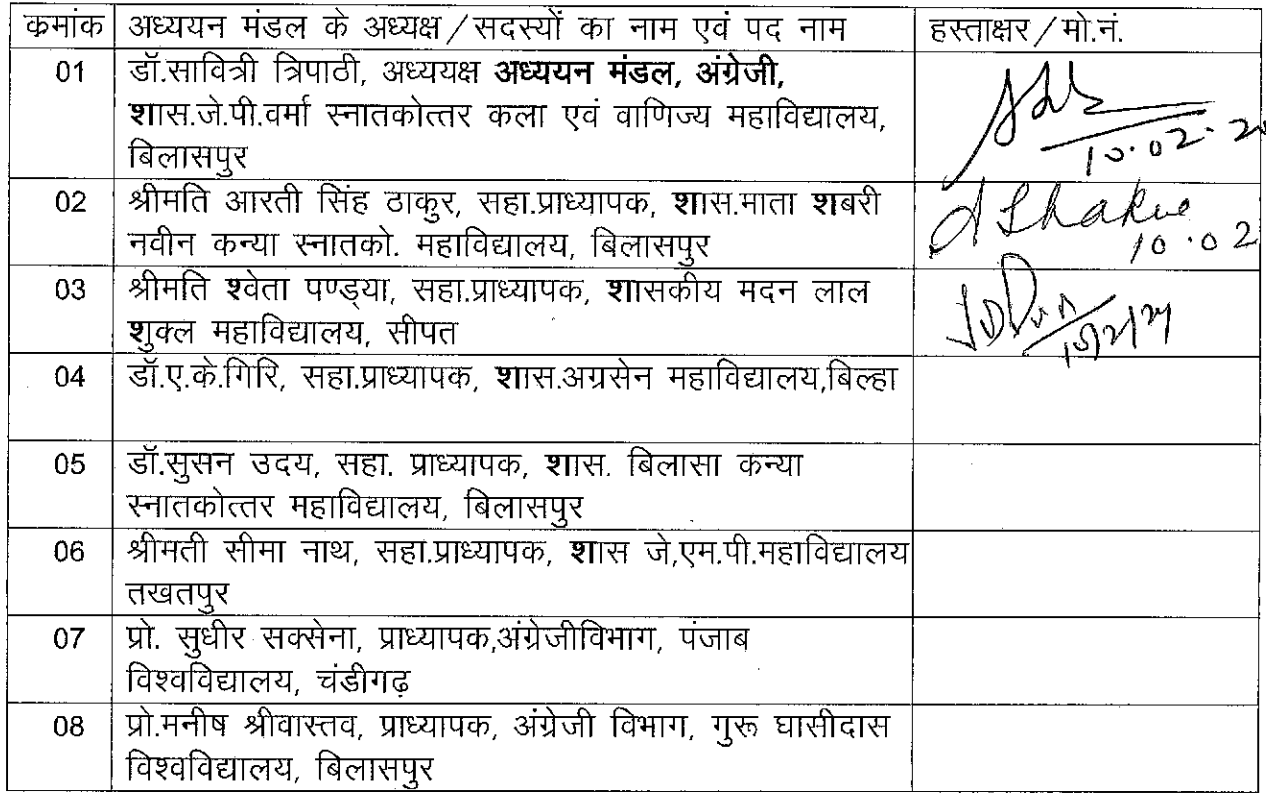 क्रमांक अध्ययन मंडल के अध्यक्ष/सदस्यों का नाम एवं पद नाम हस्ताक्षर/मो.नं.
01 डॉ.सावित्री त्रिपाठी, अध्ययक्ष अध्ययन मंडल, अंग्रेजी,
शास.जे.पी.वर्मा स्नातकोत्तर कला एवं वाणिज्य महाविद्यालय,
बिलासपुर
10.02.
02 श्रीमति आरती सिंह ठाकुर, सहा.प्राध्यापक, शास.माता शबरी
नवीन कन्या स्नातको. महाविद्यालय, बिलासपुर
10.02
03 श्रीमति श्वेता पण्ड्या, सहा.प्राध्यापक, शासकीय मदन लाल
शुक्ल महाविद्यालय, सीपत
04 डॉ.ए.के.गिरि, सहा.प्राध्यापक, शास.अग्रसेन महाविद्यालय,बिल्हा
05 डॉ.सुसन उदय, सहा. प्राध्यापक, शास. बिलासा कन्या
स्नातकोत्तर महाविद्यालय, बिलासपुर
06 श्रीमती सीमा नाथ, सहा.प्राध्यापक, शास जे,एम.पी.महाविद्यालय
तखतपुर
07 प्रो. सुधीर सक्सेना, प्राध्यापक,अंग्रेजीविभाग, पंजाब
विश्वविद्यालय, चंडीगढ़
08 प्रो.मनीष श्रीवास्तव, प्राध्यापक, अंग्रेजी विभाग, गुरू घासीदास
विश्वविद्यालय, बिलासपुर